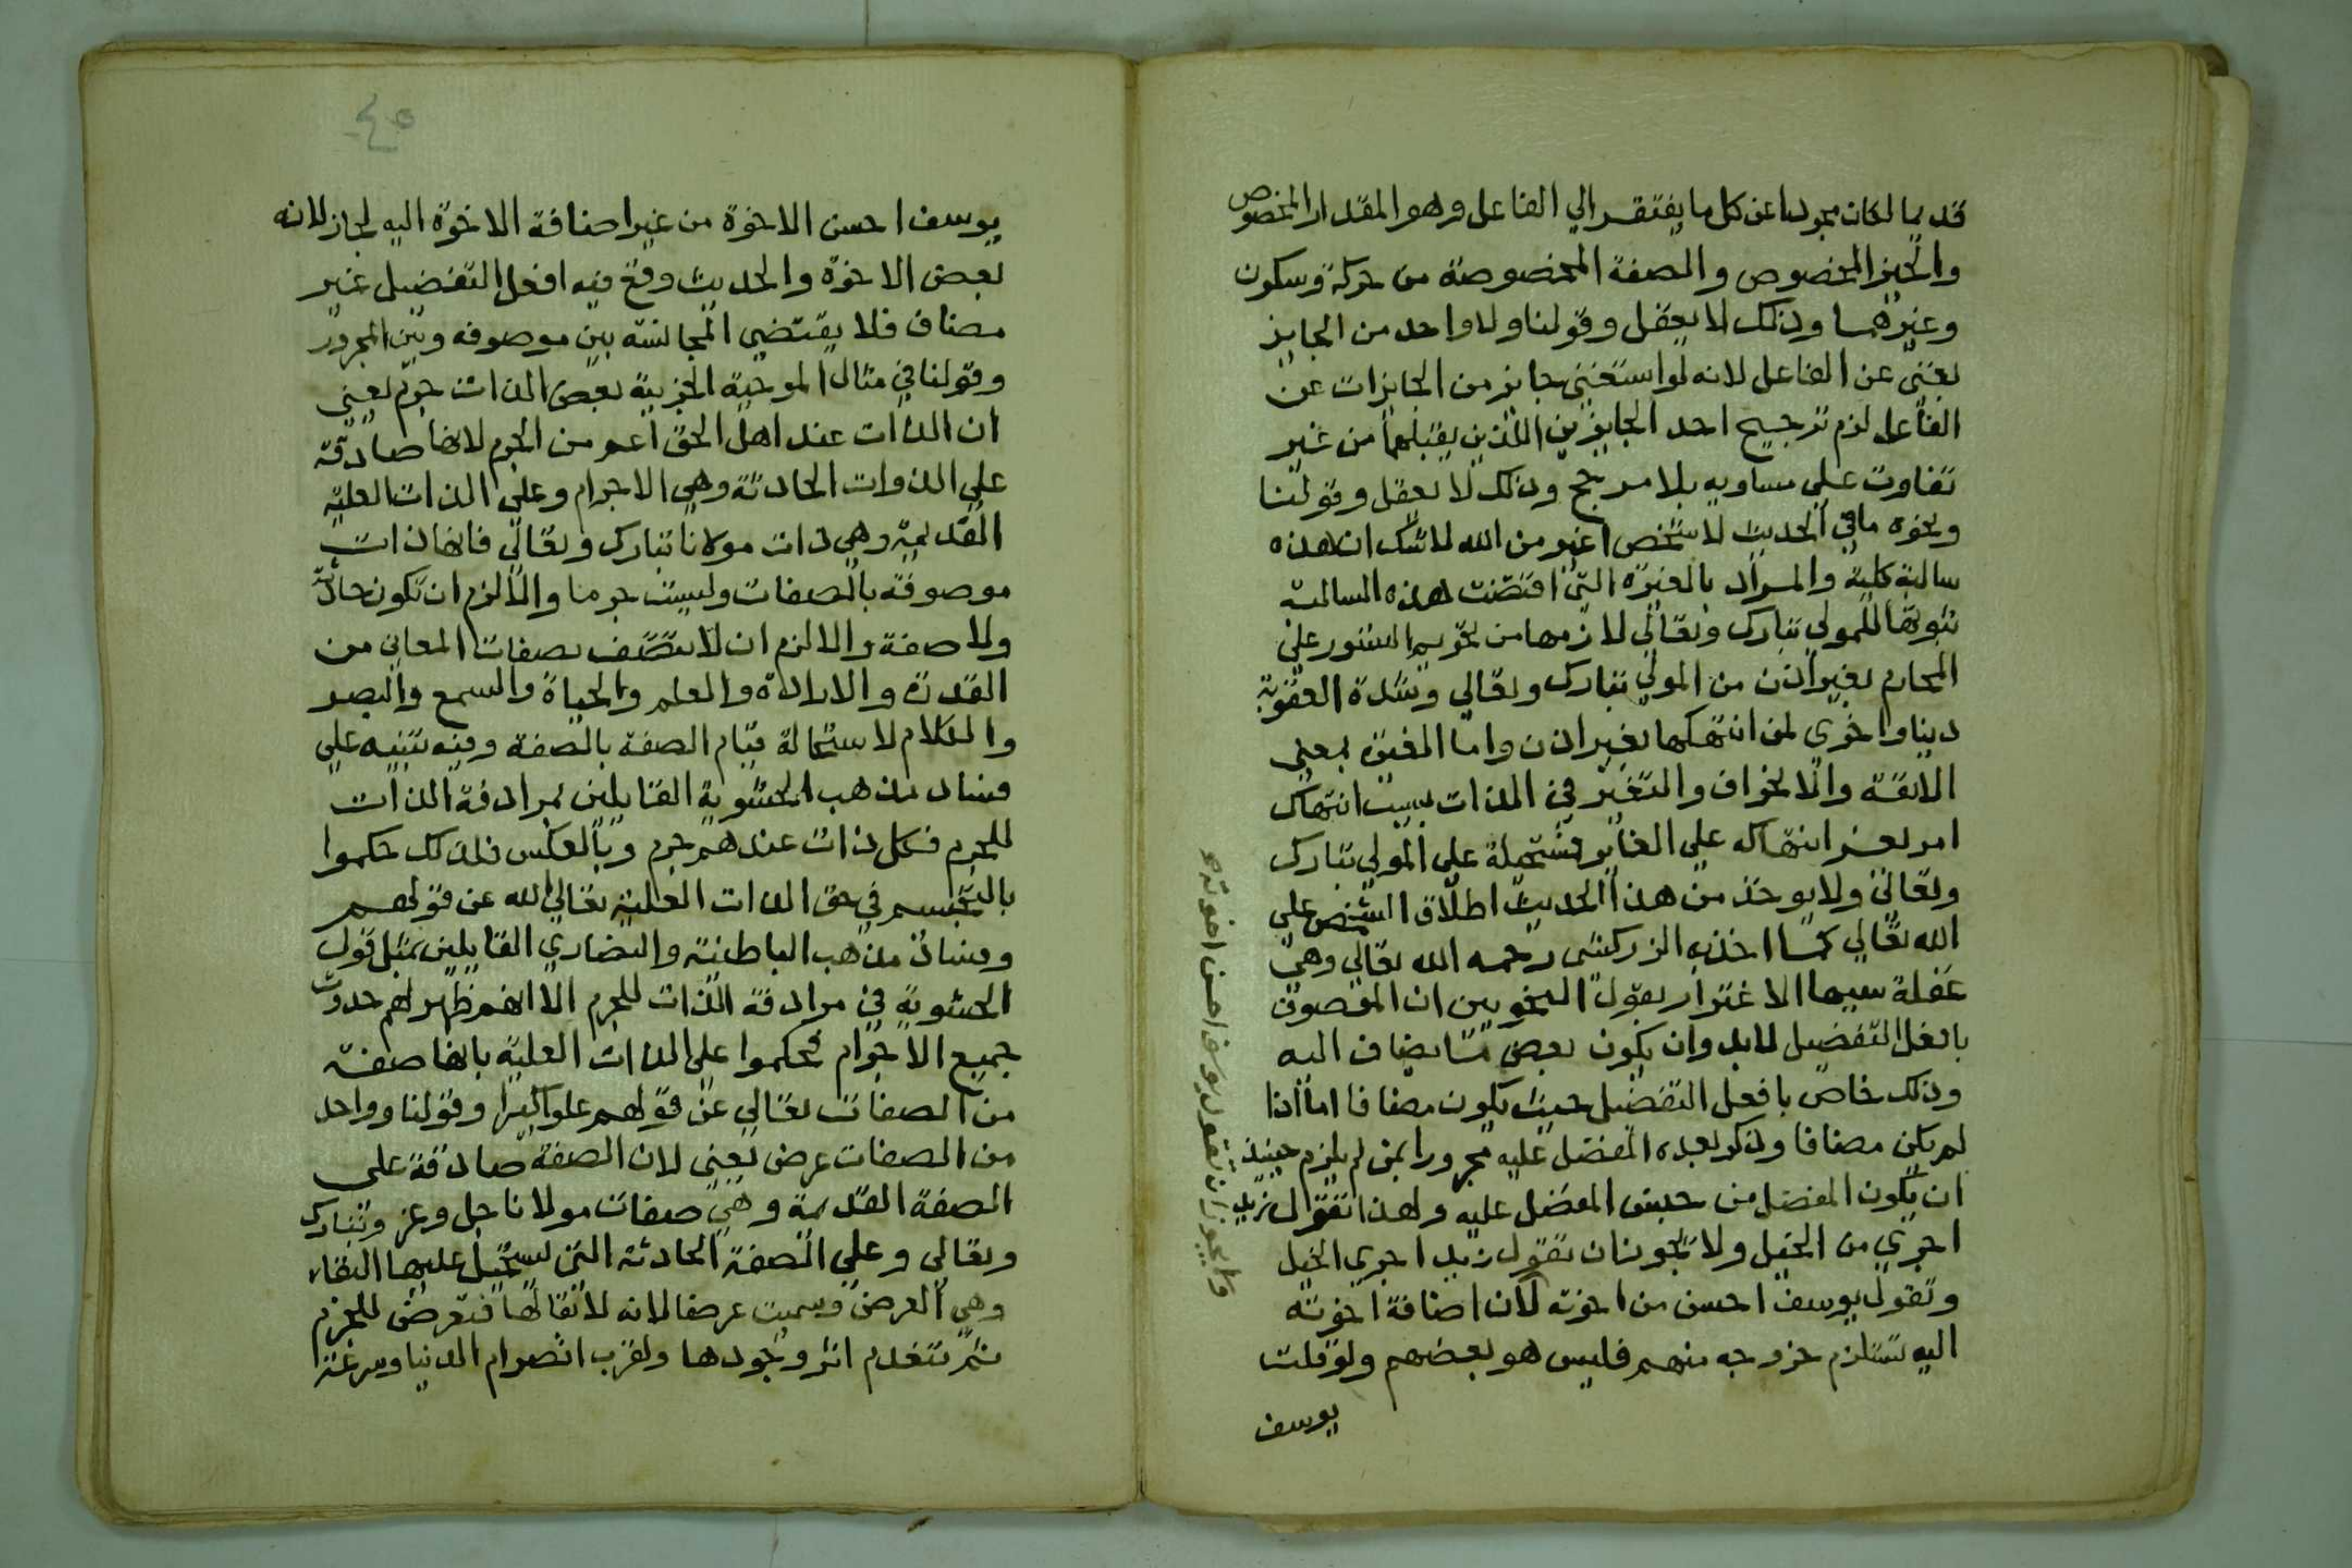 قديما لكان مجردا عن كل ما يفتقر الي الفاعل وهو المقدار المخصوص
والحيز المخصوص والصفة المخصوصة من حركة وسكون
وغيرهما وذلك لا يعقل وقولنا ولا واحد من الجايز
بغني عن الفاعل لانه لو استغني جايز من الجايزات عن
الفاعل لزم ترجيح احد الجايزين اللذين يقبلهما من غير
تفاوت علي مساويه بلا مرجح وذلك لا يعقل وقولنا
ونحوه ما في الحديث لا شخص اغير من الله لا شك ان هذه
سالبة كلية والمراد بالغيرة التي اقتضت هذه السالبة
ثبوتها للمولي تبارك وتعالي لازمها من تحريم الستور علي
المحارم بغير اذن من المولي تبارك وتعالي وشدة العقوبة
دنيا واخري لمن انتهكها بغير اذن واما الغيرة بمعني
الانفة والانحراف والتغير في الذات بسبب انتهاك
امر يعز انتهاكه علي الغاير فمستحيلة علي المولي تبارك
وتعالي ولا يوخذ من هذا الحديث اطلاق الشخص علي
الله تعالي كما اخذه الزركشي رحمه الله تعالي وهي
غفلة سببها الاغترار بقول النحويين ان الموصوف
بافعل التفضيل لابد وان يكون بعض ما يضاف اليه
وذلك خاص بافعل التفضيل حيث يكون مضافا اما اذا
لم يكن مضافا وذكر بعده المفضل عليه مجرورا بمن لم يلزم حينئذ
ان يكون المفضل من جنس المفضل عليه ولهذا تقول زيد
اجري من الخيل ولا يجوز ان تقول زيد اجري الخيل
وتقول يوسف احسن من اخوته لان اضافة اخوته
اليه تستلزم خروجه منهم فليس هو بعضهم ولو قلت
يوسف
ولا يجوز ان تقول يوسف احسن اخوته
٤٥
يوسف احسن الاخوة من غير اضافة الاخوة اليه لجاز لانه
بعض الاخوة والحديث وقع فيه افعل التفضيل غير
مضاف فلا يقتضي المجانسة بين موصوفه وبين المجرور
وقولنا في مثال الموجبة الجزيية بعض الذات جرم يعني
ان الذات عند اهل الحق اعم من الجرم لانها صادقة
علي الذوات الحادثة وهي الاجرام وعلي الذات العلية
القديمة وهي ذات مولانا تبارك وتعالي فانها ذات
موصوفة بالصفات وليست جرما والا لزم ان تكون حادثة
ولا صفة والا لزم ان لا تتصف بصفات المعاني من
القدرة والارادة والعلم والحياة والسمع والبصر
والكلام لاستحالة قيام الصفة بالصفة وفيه تنبيه علي
فساد مذهب الحشوية القايلين بمرادفة الذات
للجرم فكل ذات عندهم جرم وبالعكس فلذلك حكموا
بالتجسم في حق الذات العلية تعالي الله عن قولهم
وفساد مذهب الباطنية والنصاري القايلين بمثل قول
الحشوية في مرادفة الذات للجرم الا انهم ظهر لهم حدوث
جميع الاجرام فحكموا علي الذات العلية بانها صفة
من الصفات تعالي عن قولهم علوا كبيرا وقولنا وواحد
من الصفات عرض يعني لان الصفة صادقة علي
الصفة القديمة وهي صفات مولانا جل وعز وتبارك
وتعالي وعلي الصفة الحادثة التي يستحيل عليها البقاء
وهي العرض وسميت عرضا لانه لا بقا لها فتعرض للجرم
ثم تنعدم اثر وجودها ولقرب انصرام الدنيا وسرعة